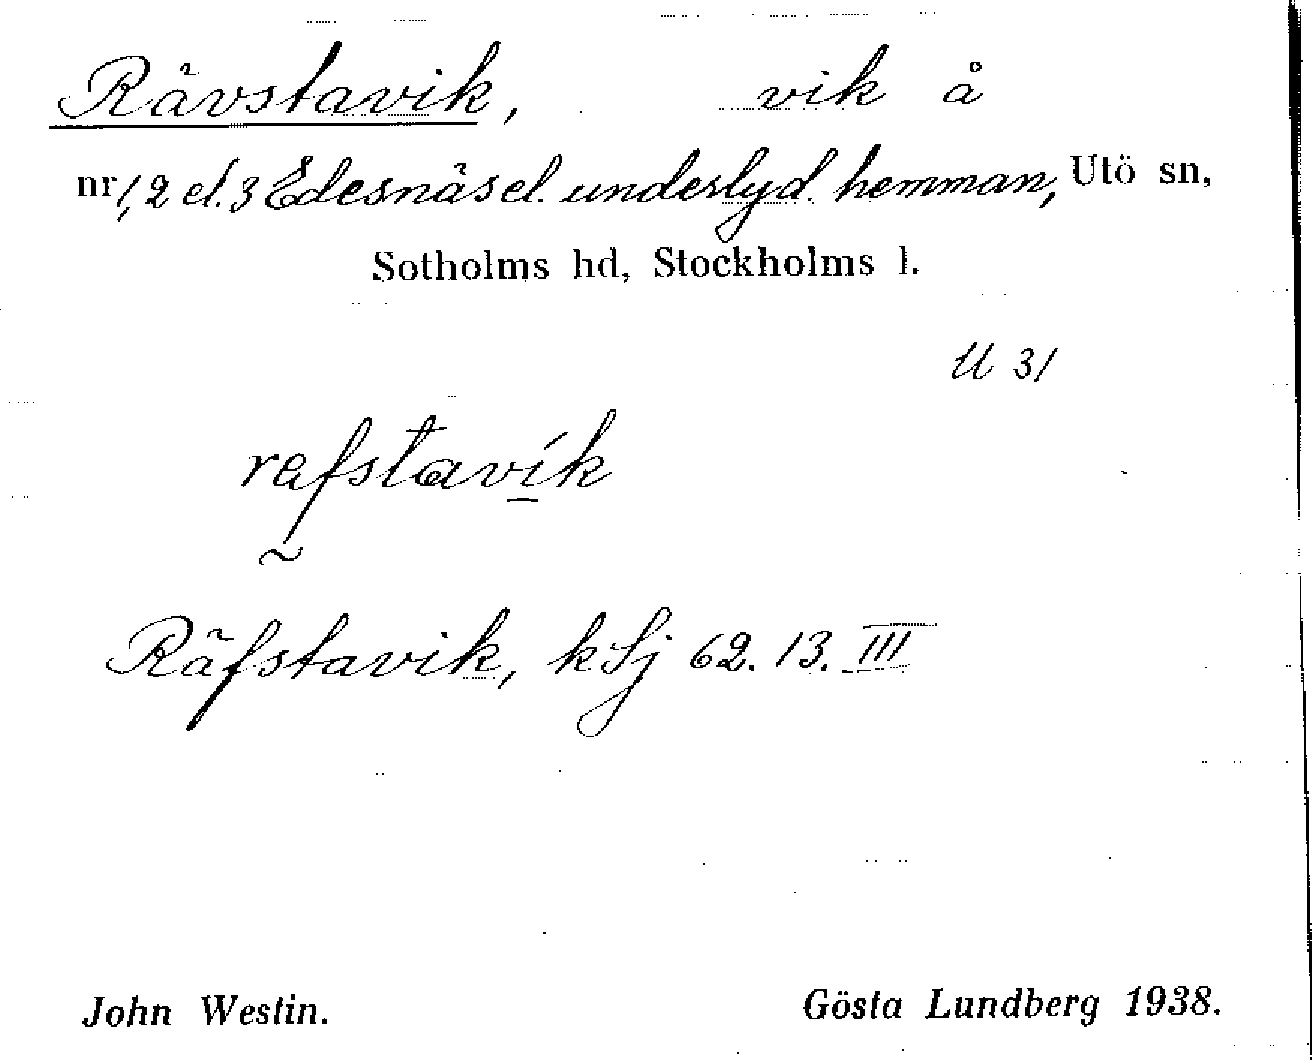 Rävstavik, vik å
nr 1, 2 el. 3 Edesnäs el. underlyd. hemman, Utö sn,
Sotholms hd, Stockholms l.
U 31
rafstavík
~
Räfstavik, kSj 62. 13. III
John Westin. Gösta Lundberg 1938.